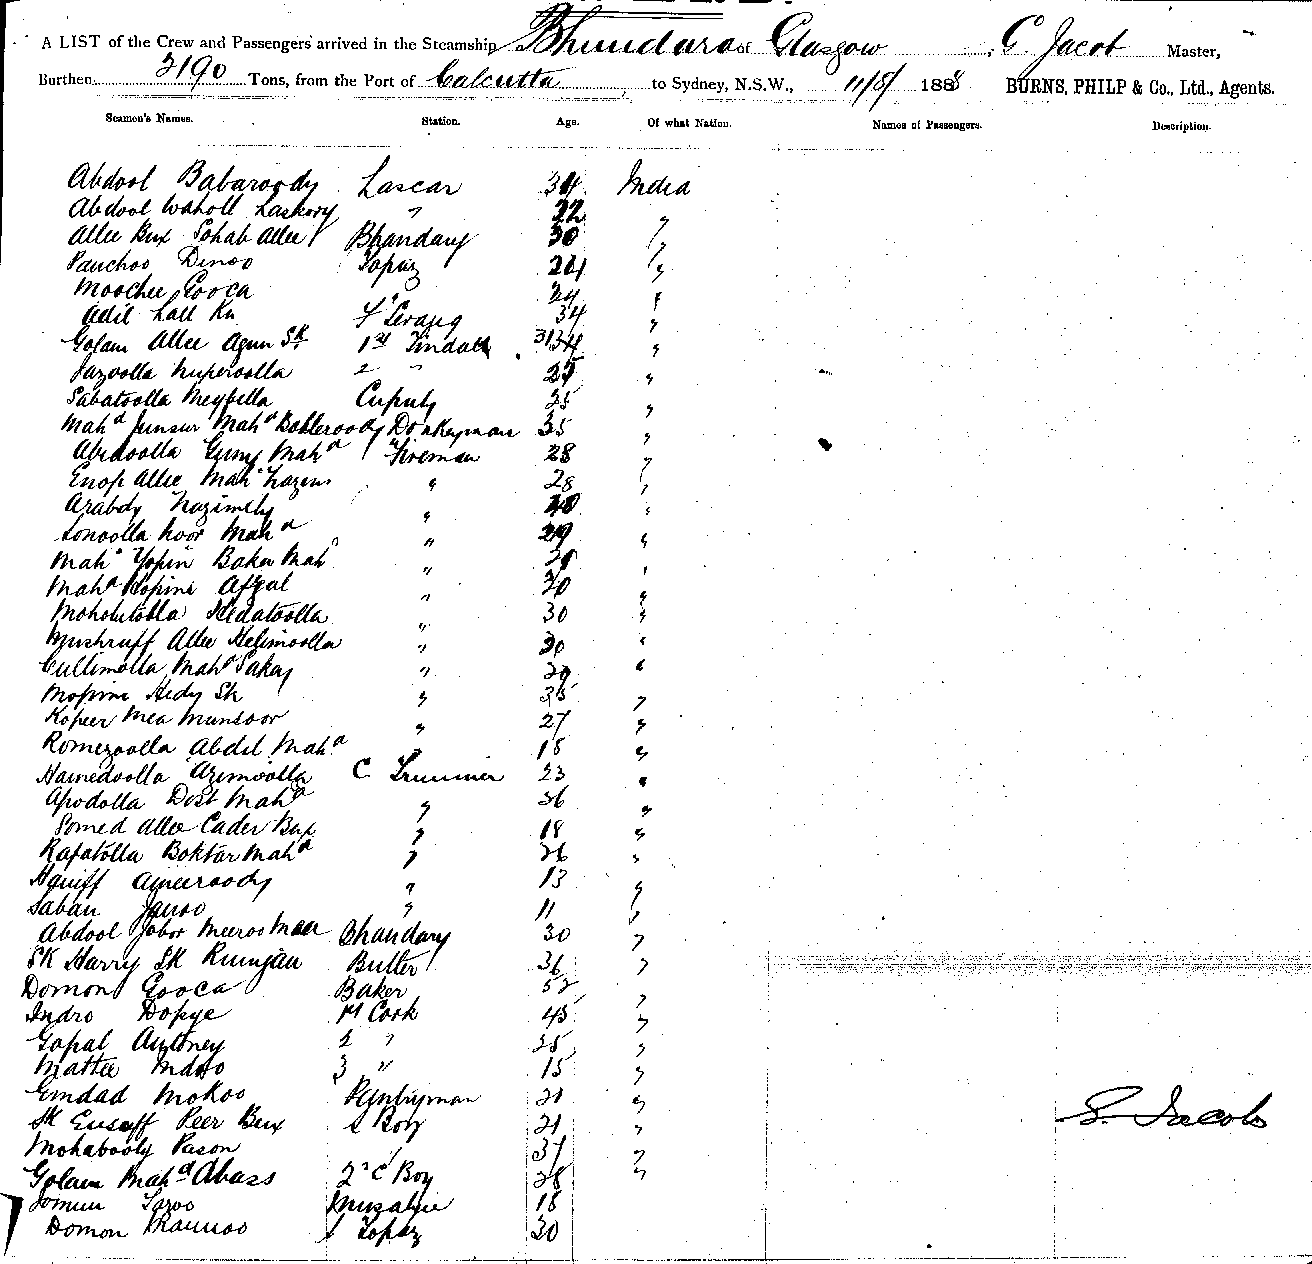 A LIST of the Crew and Passengers arrived in the Steamship Bhundara of Glasgow, G. Jacob Master,
Burthen 2190 Tons, from the Port of Calcutta to Sydney, N.S.W., 11/8/ 1888 BURNS, PHILP & Co., Ltd., Agents.
Seamen's Names. Station. Age. Of what Nation. Names of Passengers. Description.
Abdool Babaroody Lascar 34 India
Abdool Waholl Laskory " 22 "
Allee Bux Sohab Allee Bhandary 30 "
Panchoo Dinoo Topaz 24 "
Moochee Gooca 24 "
Adil Lall Kn Serang 34 "
Golam Allee Agun Sk 1st Tindall 34 "
Fazoolla Nuperoolla 2 " 25 "
Sabatoolla Meybilla 25 "
Mahd Mahd Donkeyman 35 "
Abdoolla Guny Mahd Fireman 28 "
Enop Allee Mahd 28 "
Arabdy Nazimdy " "
Sonoolla Noor Mahd " 29 "
Mahd Yopin Baker Mahd " "
Mahd Afzal " 30 "
Hedatoolla " 30 "
Mushruff Allee Helimoolla " 30 "
Cullimolla Mahd " 29 "
Mopini Hedy Sk " 35 "
Kopeer Mea Munsoor " 27 "
Romezoolla Abdil Mahd " 18 "
Hamedoolla Azimoolla C. Trimmer 23 "
Apodolla Dost Mahd " 36 "
Somed Allee Cader Bux " 18 "
Rafatolla Boktar Mahd " 26 "
Haniff Ameeroody " 13 "
Saban Janoo " 11 "
Abdool Jobor Meeroo Meer Bhandary 30 "
SK Harry SK Rumjan Butler 36 "
Domon Gooca Baker 52 "
Indro Dopye Cook 45 "
Gopal Antoney 2 " 25 "
Mattee Indro 3 " 15 "
Emdad Mokoo Pantryman 21 "
SK Eusoff Peer Bux S Boy 21 "
Mohabooly Pason 37 "
Golam Mahd Abass 2nd C Boy 28 "
Jomun 18
Domon Topaz 30
G. Jacob